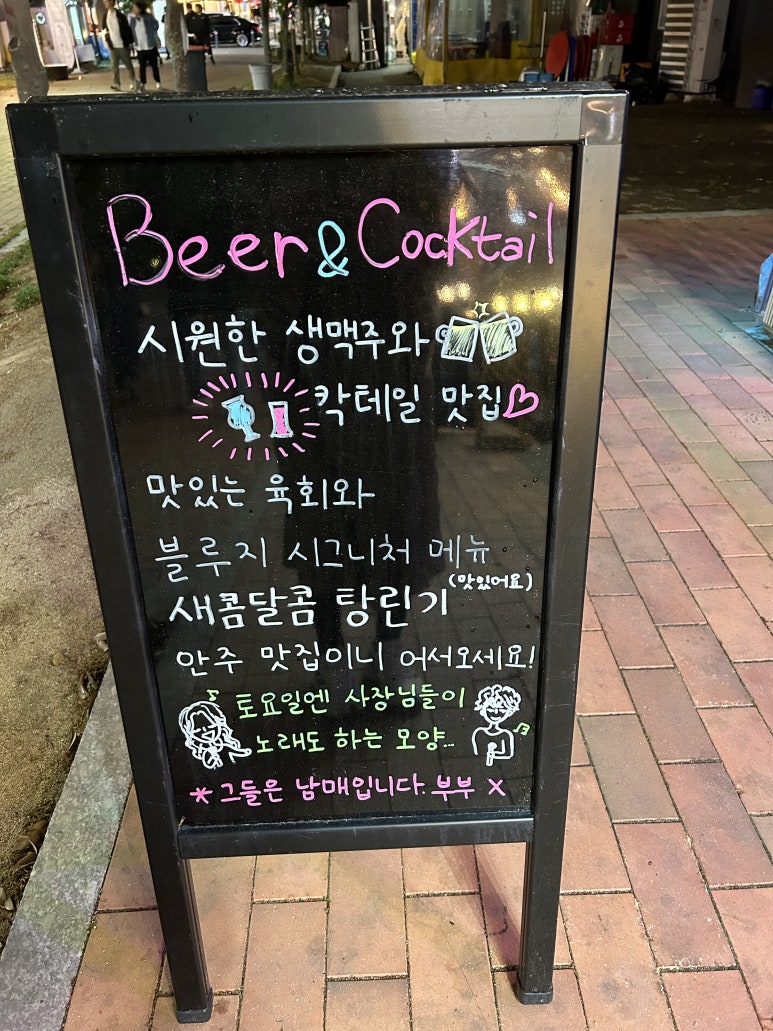 Beer & Cocktail
시원한 생맥주와
칵테일 맛집
맛있는 육회와
블루지 시그니처 메뉴
(맛있어요)
새콤달콤 탕린기
안주 맛집이니 어서오세요!
토요일엔 사장님들이
노래도 하는 모양...
* 그들은 남매입니다. 부부 X